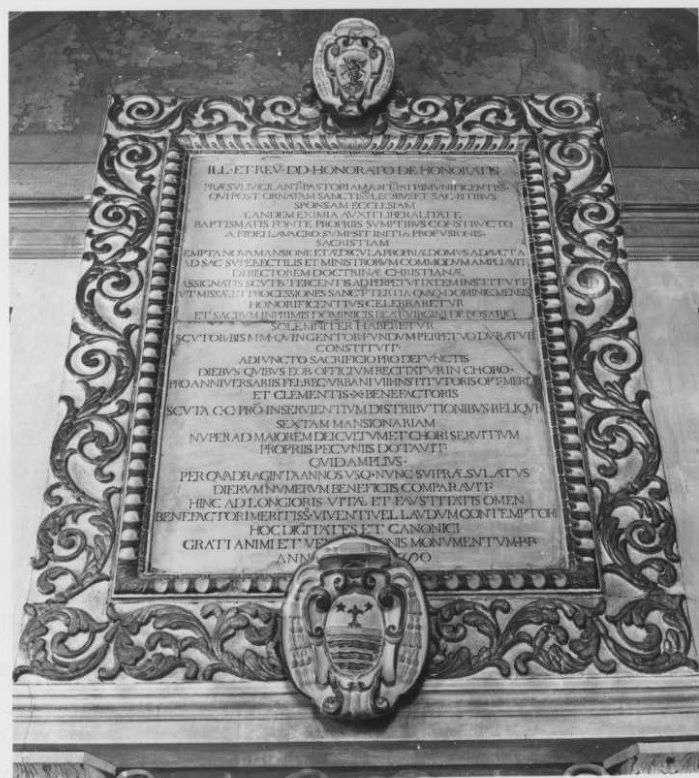 ILL·ET REV·DD·HONORATO DE HONORATIS
PRÆSVLI VIGILANT·PASTORI AMANT·PATRI MVNIFICENTISS·
QVI POST ORNATAM SANCTISS·LEGIBVS ET SAC·RITIBVS
SPONSAM ECCLESIAM
EANDEM EXIMIA AVXIT LIBERALITATE
BAPTISMATIS FONTE PROPRIIS SVMPTIBVS CONSTRVCTO
A FIDEI LAVACRO SVMPSIT INITIA PROFVSIONIS·
SACRISTIAM
EMPTA NOVA MANSIONE ET ÆDICVLA PROPRIÆ DOMVS ADAVCTA
AD SAC·SVPELLECTILIS ET MINISTRORVM COMMODVM AMPLIAVIT
DIRECTOREM DOCTRINÆ CHRISTIANÆ
ASSIGNATIS SCVTIS TERCENTIS AD PERPETVITATEM INSTITVIT
VT MISSÆ ET PROCESSIONES SANCT· TERTIA QVAQ·DOMINIC·MENSIS
HONORIFICENTIVS CELEBRARETVR
ET SACRVM IN PRIMIS DOMINICIS BEAT·VIRGINI DE ROSARIO
SOLEMNITER HABERETVR
SCVTOR·BIS MM·QVINGENTOR·FVNDVM PERPETVO DVRATVR
CONSTITVIT·
ADIVNCTO SACRIFICIO PRO DEFVNCTIS
DIEBVS QVIBVS EOR·OFFICIVM RECITATVR IN CHORO·
PRO ANNIVERSARIIS FEL·REC·VRBANI VIII·INSTITVTORIS OPT·MERIT
ET CLEMENTIS·X·BENEFACTORIS
SCVTA CC·PRO INSERVIENTIVM DISTRIBVTIONIBVS RELIQVI
SEXTAM MANSIONARIAM
NVPER AD MAIOREM DEI CVLTVM ET CHORI SERVITIVM
PROPRIIS PECVNIIS DOTAVIT·
QVID AMPLIVS·
PER QVADRAGINTA ANNOS VSQ·NVNC SVI PRÆSVLATVS
DIERVM NVMERVM BENEFICIIS COMPARAVIT·
HINC AD LONGIORIS VITÆ ET FAVSTITATIS OMEN
BENEFACTORI MERITISS·VIVENTI VEL LAVDVM CONTEMPTOR
HOC DIGNITATES ET CANONICI
GRATI ANIMI ET MONVMENTVM·PP
ANN